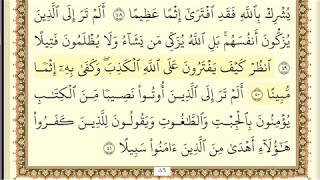 يُشْرِكْ بِٱللَّهِ فَقَدِ ٱفْتَرَىٰٓ إِثْمًا عَظِيمًا ٤٨ أَلَمْ تَرَ إِلَى ٱلَّذِينَ
يُزَكُّونَ أَنفُسَهُم ۚ بَلِ ٱللَّهُ يُزَكِّى مَن يَشَآءُ وَلَا يُظْلَمُونَ فَتِيلًا
٤٩ ٱنظُرْ كَيْفَ يَفْتَرُونَ عَلَى ٱللَّهِ ٱلْكَذِبَ ۖ وَكَفَىٰ بِهِۦٓ إِثْمًا
مُّبِينًا ٥٠ أَلَمْ تَرَ إِلَى ٱلَّذِينَ أُوتُوا۟ نَصِيبًا مِّنَ ٱلْكِتَٰبِ
يُؤْمِنُونَ بِٱلْجِبْتِ وَٱلطَّٰغُوتِ وَيَقُولُونَ لِلَّذِينَ كَفَرُوا۟
هَٰٓؤُلَآءِ أَهْدَىٰ مِنَ ٱلَّذِينَ ءَامَنُوا۟ سَبِيلًا ٥١
٨٦